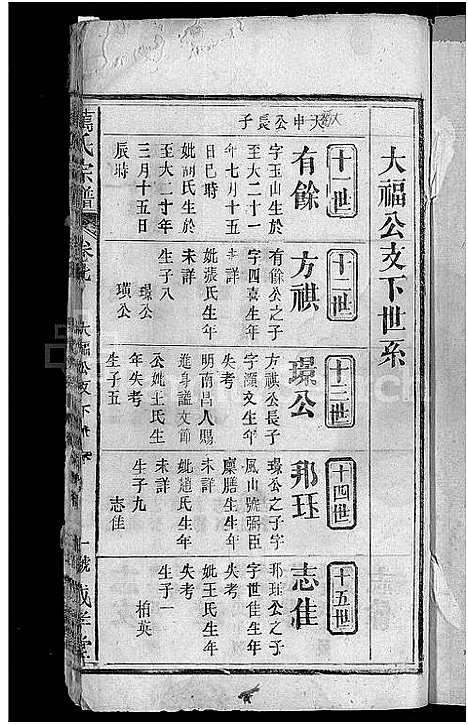 大福公支下世系
大申公長子
十一世
有餘
字玉山生於
至大二十一
年七月十五
日巳時
妣胡氏生於
至大二十年
三月十五日
辰時
十二世
方祺
有餘公之子
字四喜生年
未詳
妣張氏生年
未詳
生子八
璟公
璜公
十三世
璟公
方祺公長子
字灝文生年
失考
明南昌人賜
進身謚文節
公妣王氏生
年失考
生子五
十四世
邦珏
璟公之子字
鳳山號弼臣
廩膳生生年
未詳
妣趙氏生年
未詳
生子九
志佳
十五世
志佳
邦珏公之子
字世佳生年
失考
妣王氏生年
失考
生子一
栢英
萬氏宗譜
卷七
大福公支下世系
一號